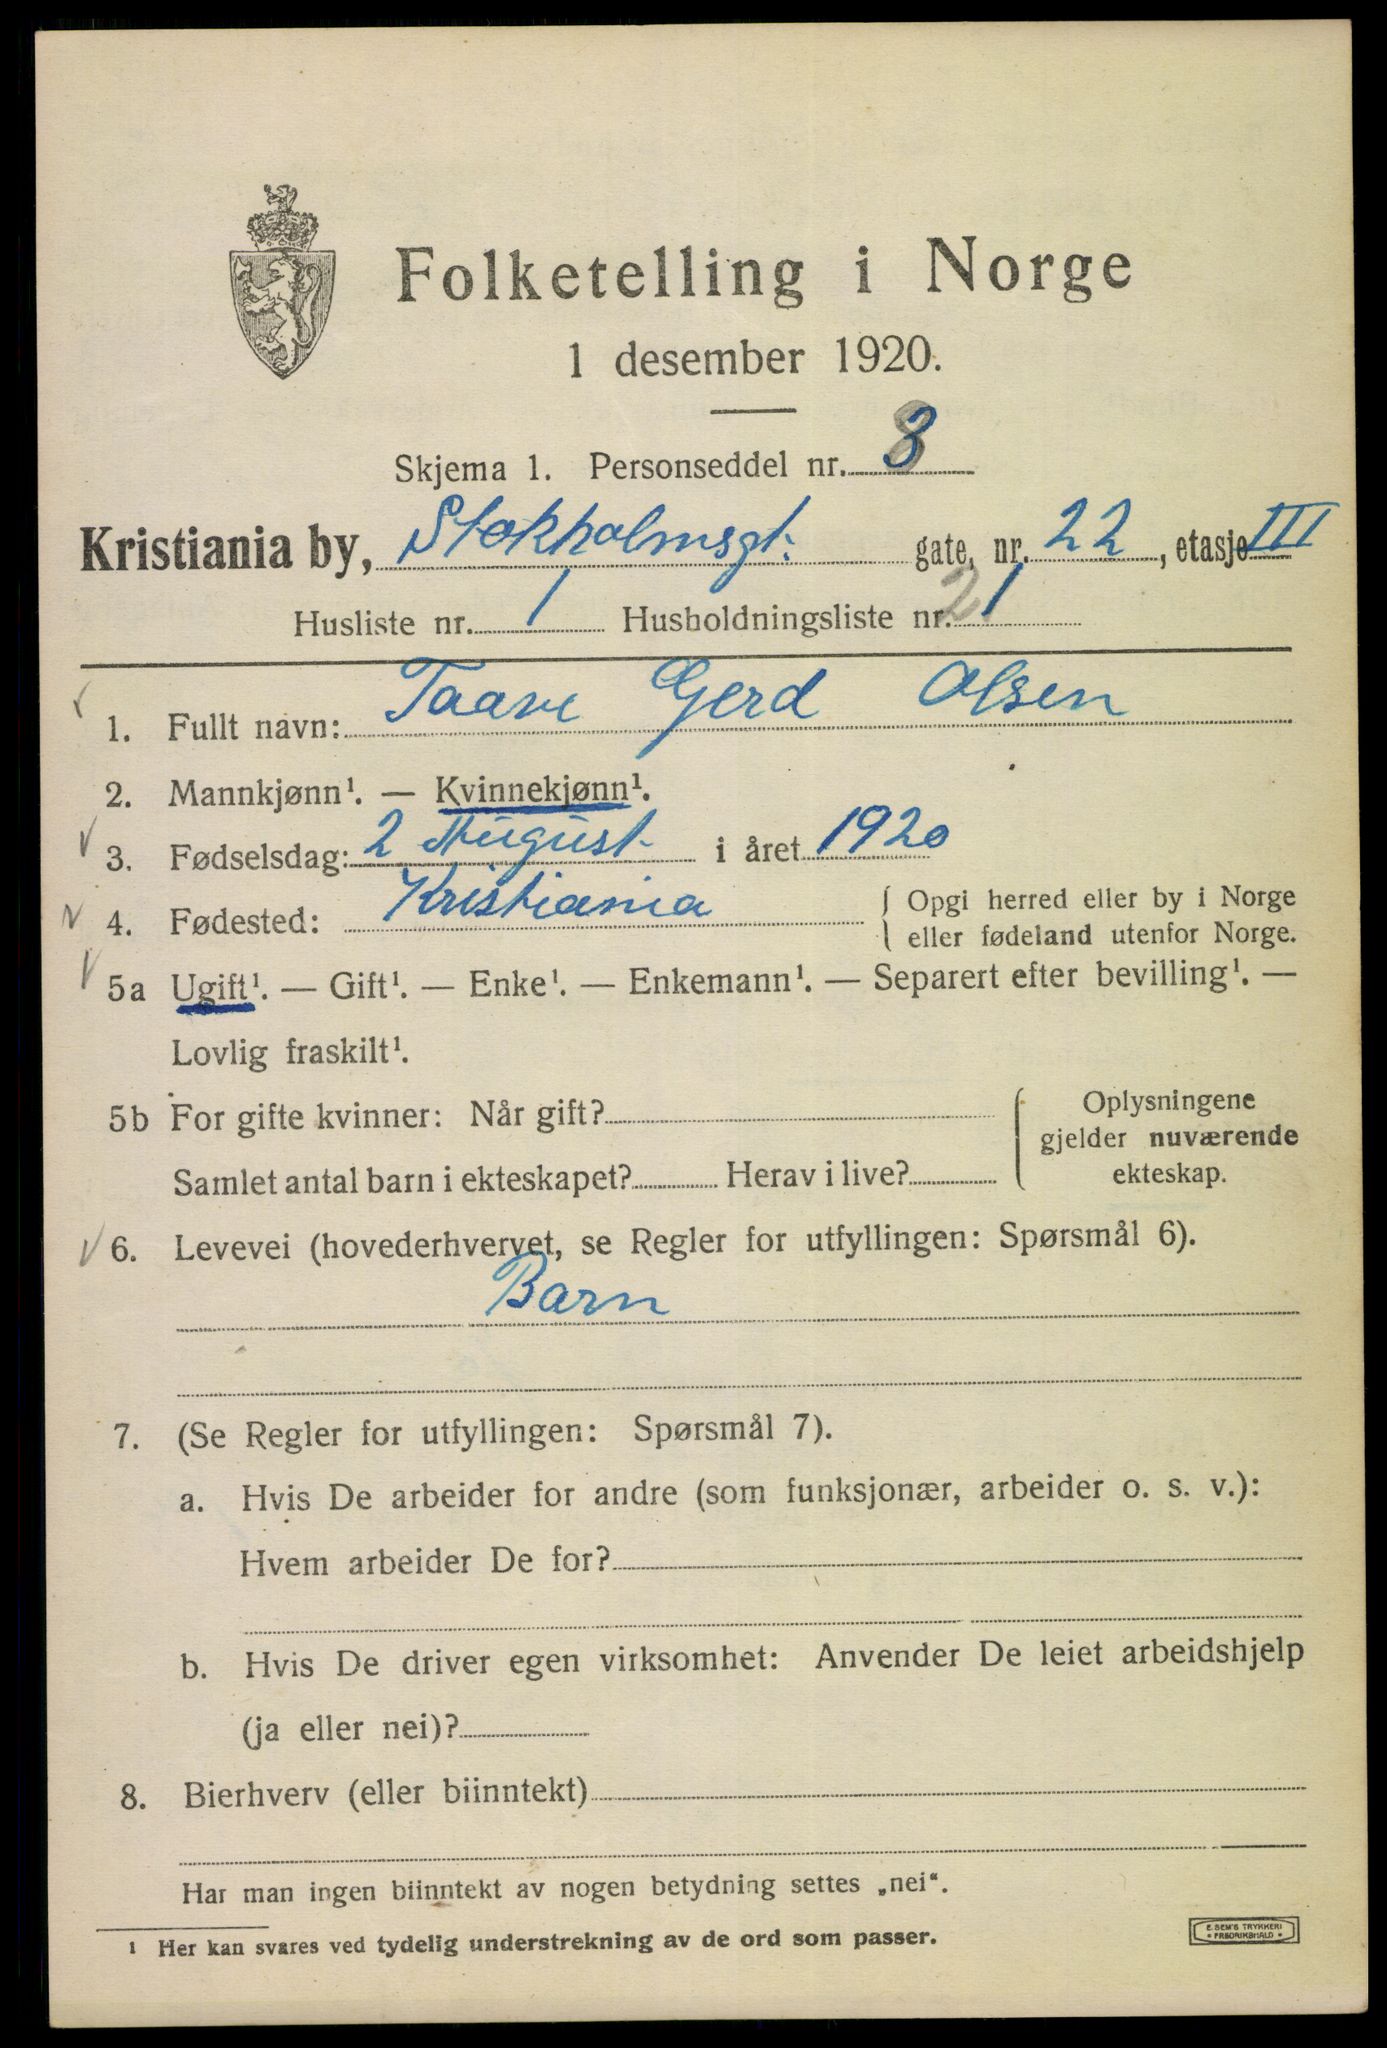 Folketelling i Norge
1 desember 1920.
Skjema 1. Personseddel nr. 3
Kristiania by, Stokholmsgt. gate, nr. 22, etasje III
Husliste nr. 1 Husholdningsliste nr. 21
1. Fullt navn: Taave Gerd Olsen
2. Mannkjønn¹. — Kvinnekjønn¹.
3. Fødselsdag: 2 August i året 1920
4. Fødested: Kristiania { Opgi herred eller by i Norge
eller fødeland utenfor Norge.
5a Ugift¹. — Gift¹. — Enke¹. — Enkemann¹. — Separert efter bevilling¹. —
Lovlig fraskilt¹.
5b For gifte kvinner: Når gift? { Oplysningene
gjelder nuværende
Samlet antal barn i ekteskapet? Herav i live? ekteskap.
6. Levevei (hovederhvervet, se Regler for utfyllingen: Spørsmål 6).
Barn
7. (Se Regler for utfyllingen: Spørsmål 7).
a. Hvis De arbeider for andre (som funksjonær, arbeider o. s. v.):
Hvem arbeider De for?
b. Hvis De driver egen virksomhet: Anvender De leiet arbeidshjelp
(ja eller nei)?
8. Bierhverv (eller biinntekt)
Har man ingen biinntekt av nogen betydning settes „nei“.
¹ Her kan svares ved tydelig understrekning av de ord som passer.
E. SEM'S TRYKKERI
* FREDRIKSHALD *